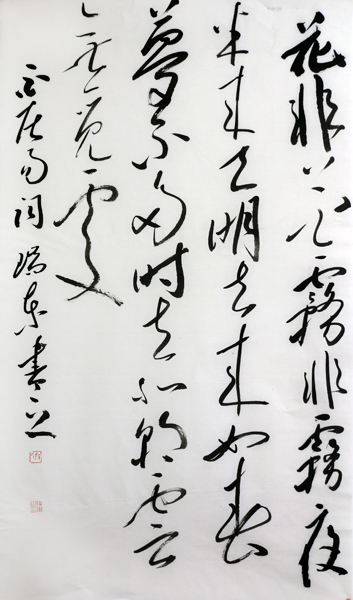 花非花霧非霧夜
半来天明去来如春
夢不多時去似朝雲
無覓處
白居易词 瑞東書之